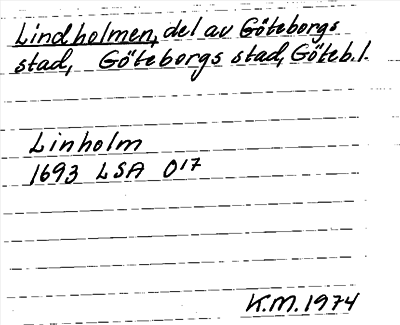 Lindholmen, del av Göteborgs
stad, Göteborgs stad, Göteb.l.
Linholm
1693 LSA O17
K.M. 1974